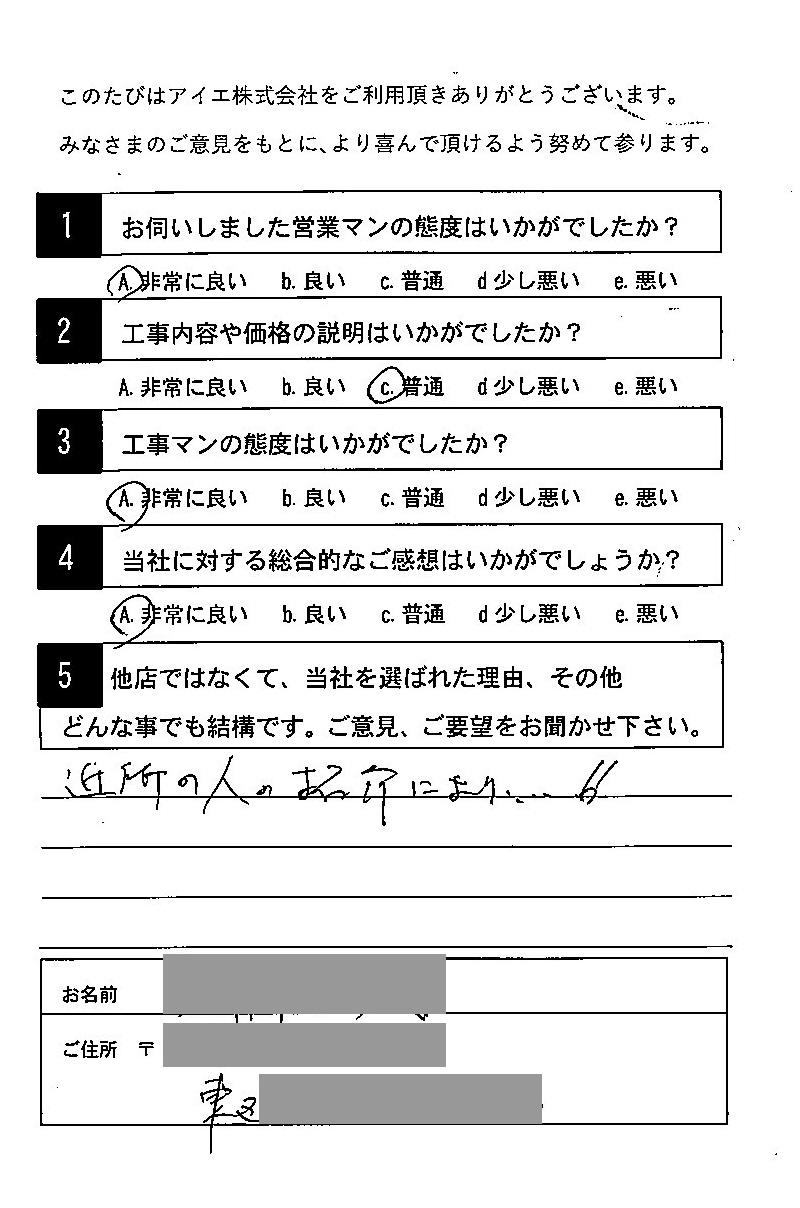 このたびはアイエ株式会社をご利用頂きありがとうございます。
みなさまのご意見をもとに、より喜んで頂けるよう努めて参ります。
1 お伺いしました営業マンの態度はいかがでしたか？
A. 非常に良い b. 良い c. 普通 d 少し悪い e. 悪い
2 工事内容や価格の説明はいかがでしたか？
A. 非常に良い b. 良い c. 普通 d 少し悪い e. 悪い
3 工事マンの態度はいかがでしたか？
A. 非常に良い b. 良い c. 普通 d 少し悪い e. 悪い
4 当社に対する総合的なご感想はいかがでしょうか？
A. 非常に良い b. 良い c. 普通 d 少し悪い e. 悪い
5 他店ではなくて、当社を選ばれた理由、その他
どんな事でも結構です。ご意見、ご要望をお聞かせ下さい。
近所の人の紹介により....
お名前
ご住所 〒
東区